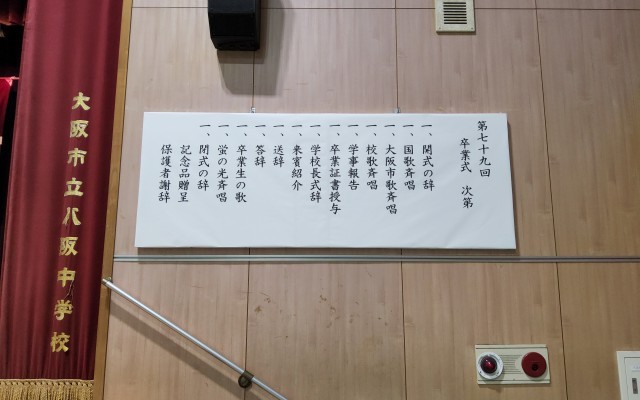 第七十九回
卒業式　次第
一、開式の辞
一、国歌斉唱
一、大阪市歌斉唱
一、校歌斉唱
一、学事報告
一、卒業証書授与
一、学校長式辞
一、来賓紹介
一、送辞
一、答辞
一、卒業生の歌
一、蛍の光斉唱
一、閉式の辞
記念品贈呈
保護者謝辞
大阪市立八阪中学校